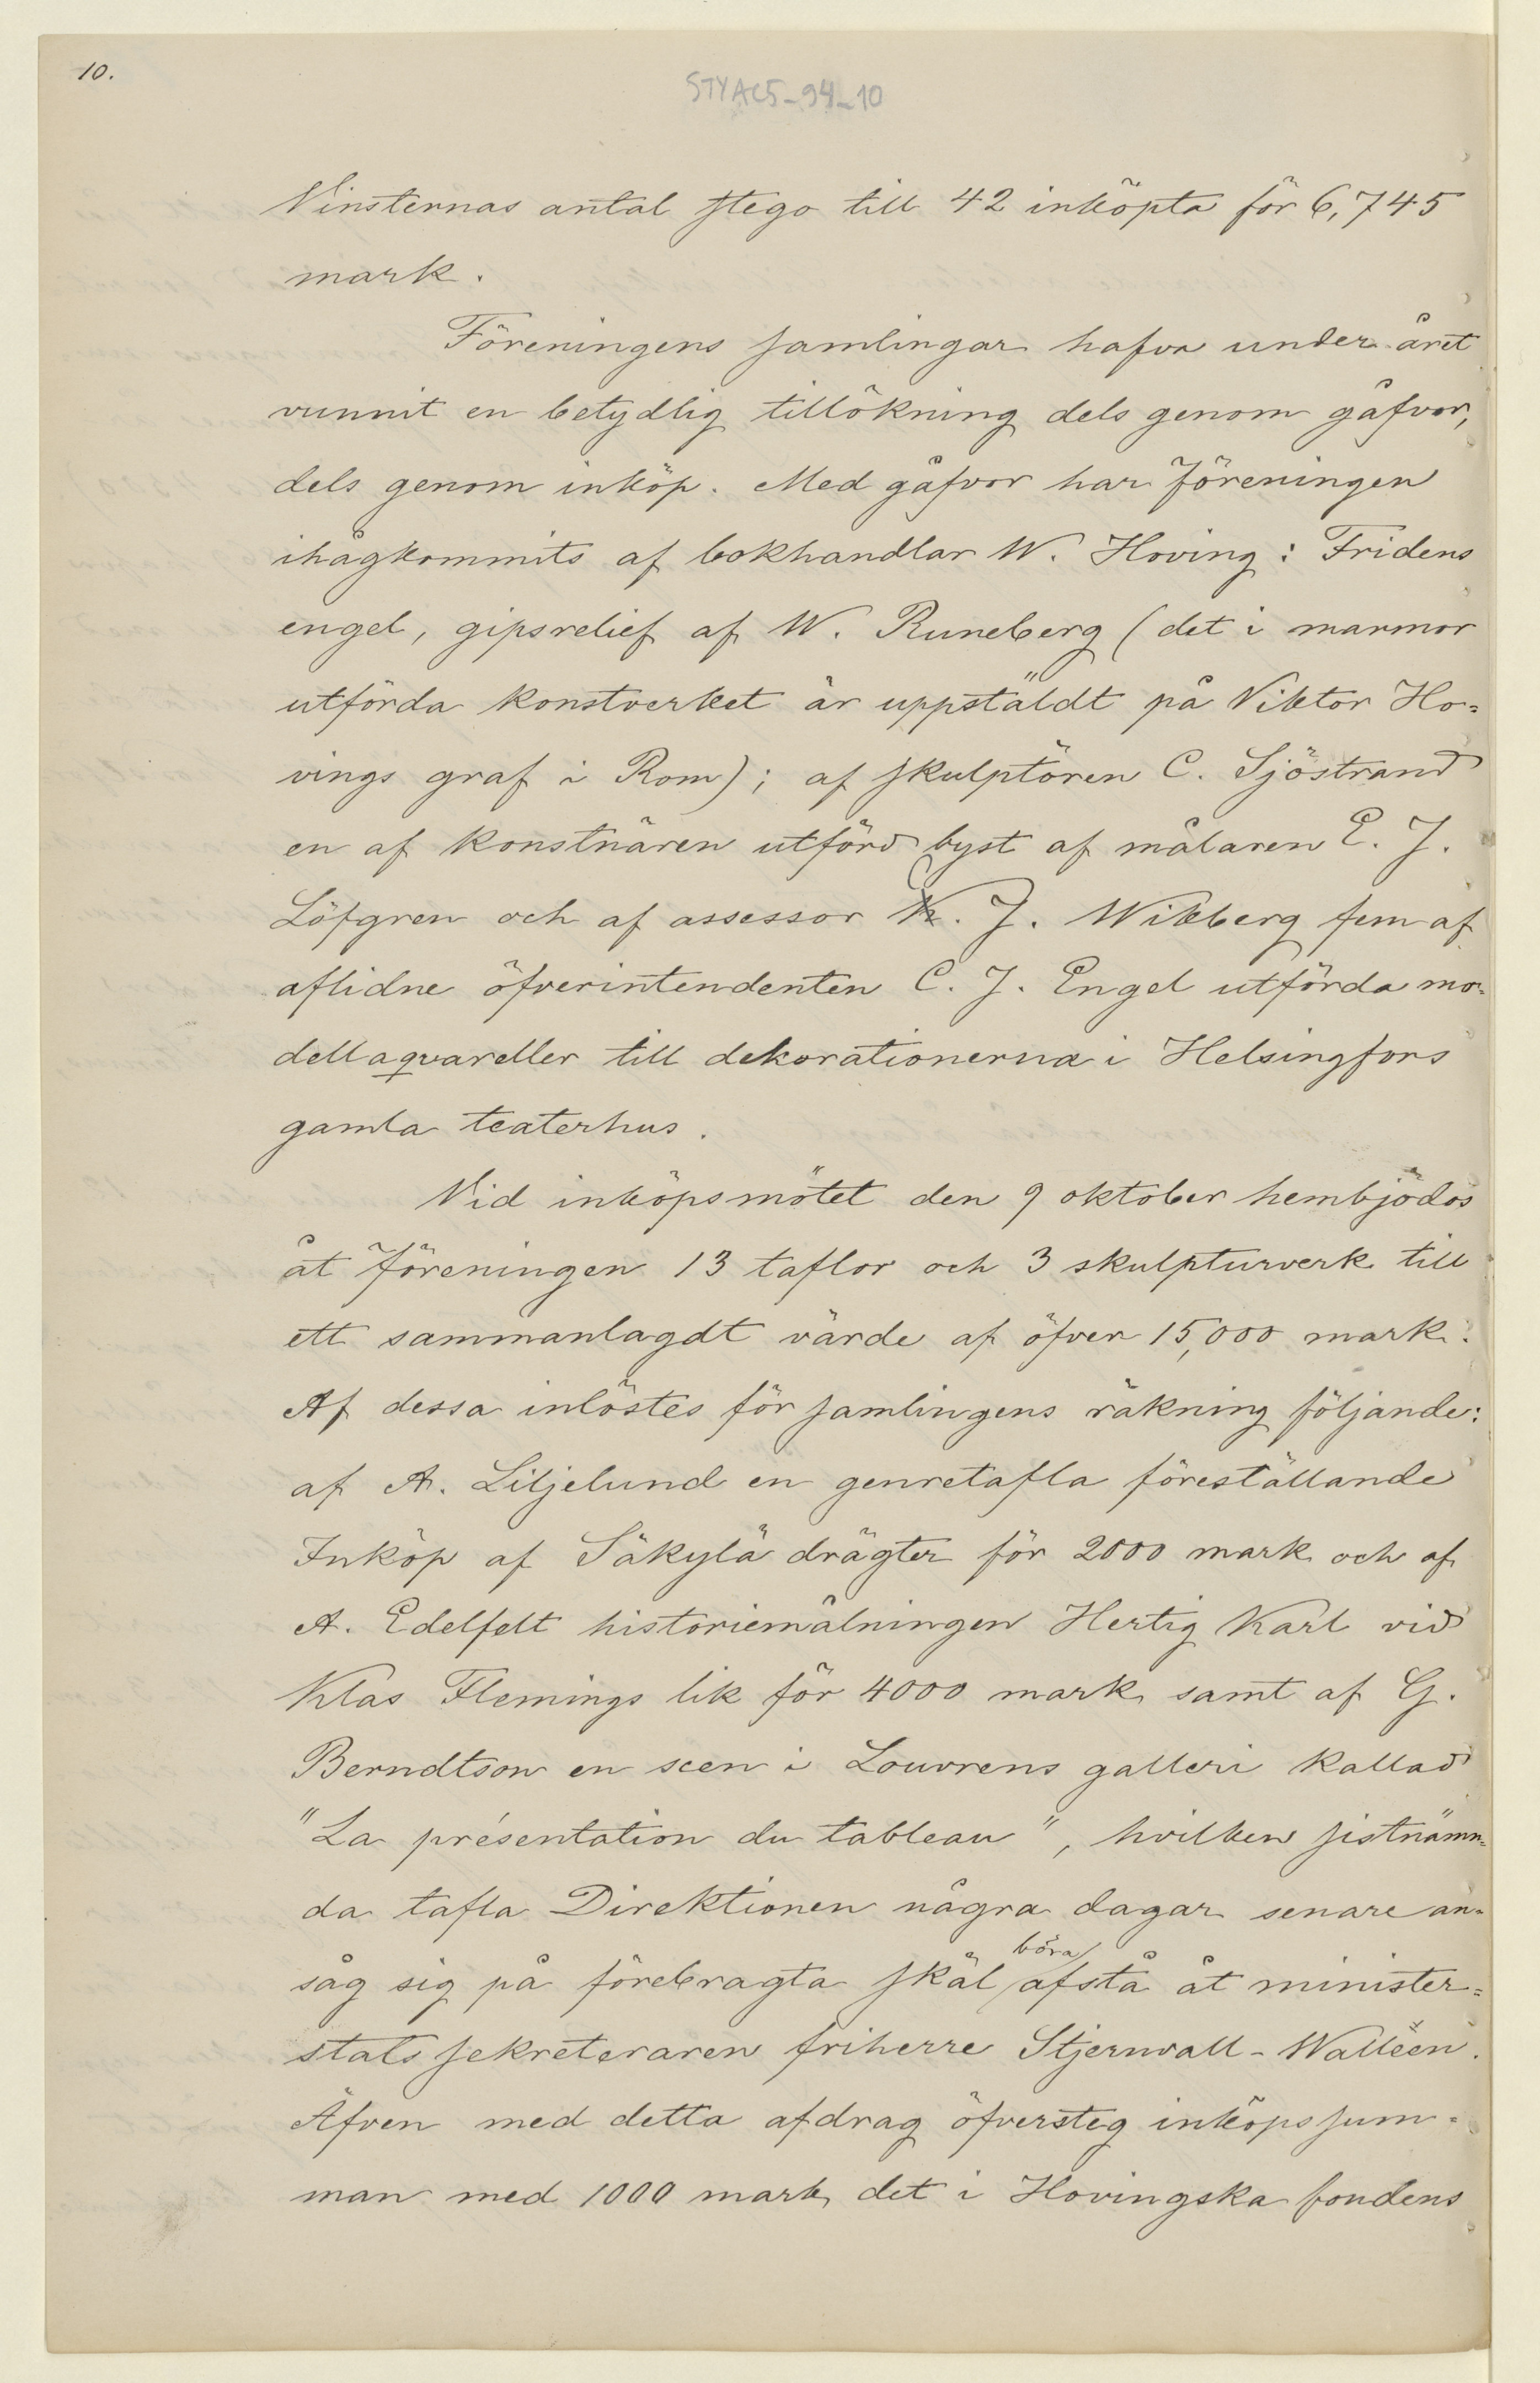 10.
STYAC5_94_10
Vinsternas antal stego till 42 inköpta för 6,745
mark.
Föreningens samlingar hafva under året
vunnit en betydlig tillökning dels genom gåfvor,
dels genom inköp. Med gåfvor har föreningen
ihågkommits af bokhandlar W. Hoving: Fridens
engel, gipsrelief af W. Runeberg (det i marmor
utförda konstverket är uppstäldt på Viktor Ho=
vings graf i Rom); af skulptören C. Sjöstrand
en af konstnären utförd byst af målaren E. J.
Löfgren och af assessor K. J. Wikberg fem af
aflidne öfverintendenten C. J. Engel utförda mo=
dellaqvareller till dekorationerna i Helsingfors
gamla teaterhus.
Vid inköpsmötet den 9 oktober hembjödos
åt föreningen 13 taflor och 3 skulpturverk till
ett sammanlagdt värde af öfver 15,000 mark.
Af dessa inlöstes för samlingens räkning följande:
af A. Liljelund en genretafla föreställande
Inköp af Säkylä drägter för 2000 mark och af
A. Edelfelt historiemålningen Hertig Karl vid
Klas Flemings lik för 4000 mark samt af G.
Berndtson en scen i Louvrens galleri kallad
"La présentation du tableau", hvilken sistnämn=
da tafla Direktionen några dagar senare an=
såg sig på förebragta skäl böra afstå åt minister=
statssekreteraren friherre Stjernvall-Walléen.
Äfven med detta afdrag öfversteg inköpssum=
man med 1000 mark det i Hovingska fondens